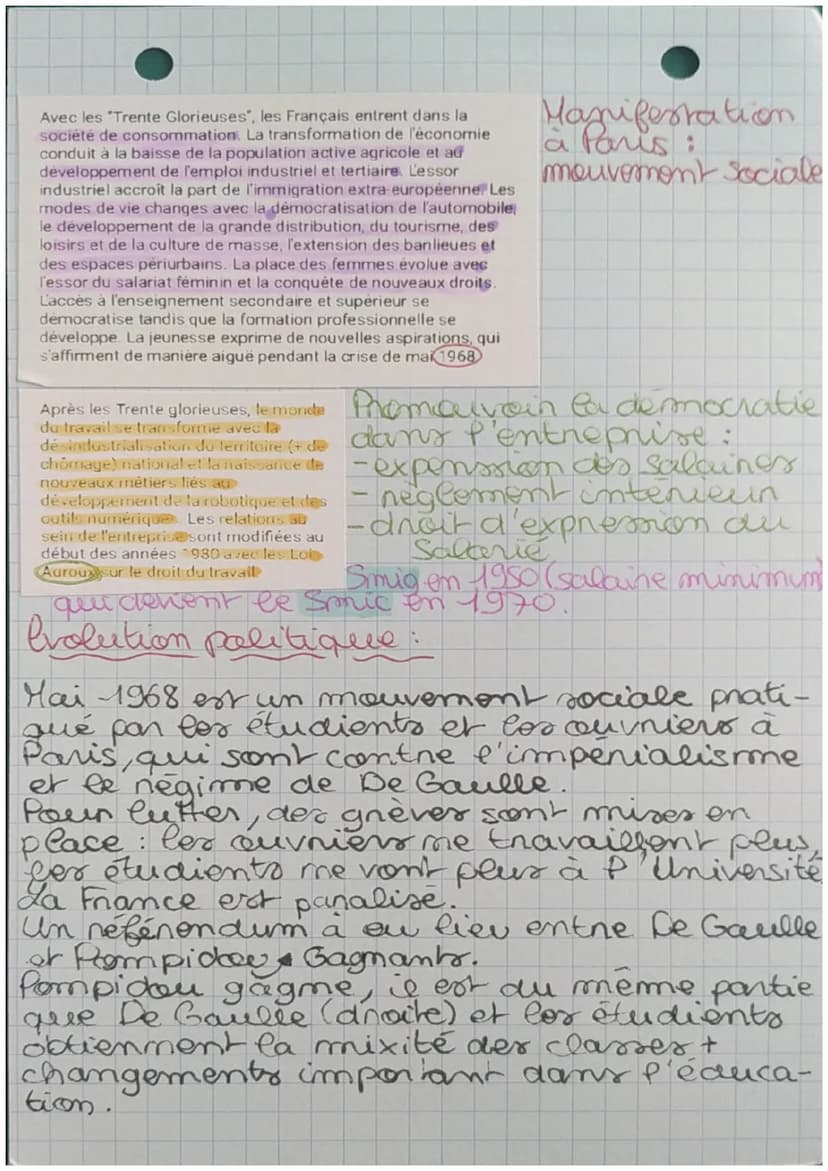 Avec les "Trente Glorieuses", les Français entrent dans la
société de consommation. La transformation de l'économie
conduit à la baisse de la population active agricole et au
développement de l'emploi industriel et tertiaire. L'essor
industriel accroît la part de l'immigration extra-européenne. Les
modes de vie changes avec la démocratisation de l'automobile,
le développement de la grande distribution, du tourisme, des
loisirs et de la culture de masse, l'extension des banlieues et
des espaces périurbains. La place des femmes évolue avec
l'essor du salariat féminin et la conquête de nouveaux droits.
L'accès à l'enseignement secondaire et supérieur se
démocratise tandis que la formation professionnelle se
développe. La jeunesse exprime de nouvelles aspirations, qui
s'affirment de manière aiguë pendant la crise de mai 1968
Manifestation
à Paris :
mouvement sociale
Après les Trente glorieuses, le monde
du travail se transforme avec la
désindustrialisation du territoire (+ de
chômage) national et la naissance de
nouveaux métiers liés au
développement de la robotique et des
outils numérique. Les relations au
sein de l'entreprise sont modifiées au
début des années 1980 avec les Loi
Auroux sur le droit du travail
Promouvoir la démocratie
dans l'entreprise :
- expenssion des salaires
- règlement intérieur
- droit d'expression du
Salarié
Smig en 1950 (salaire minimum)
qui devient le Smic en 1970.
Evolution politique :
Mai 1968 est un mouvement sociale prati-
qué par les étudients et les ouvriers à
Paris, qui sont contre l'impérialisme
et le régime de De Gaulle.
Pour lutter, des grèves sont mises en
place : les ouvriers ne travaillent plus,
les étudients ne vont plus à l'Université
La France est paralisé.
Un référendum à eu lieu entre De Gaulle
et Pompidou Gagnants.
Pompidou gagne, il est du même partie
que De Gaulle (droite) et les étudients
obtiennent la mixité des classes +
changements important dans l'éduca-
tion.